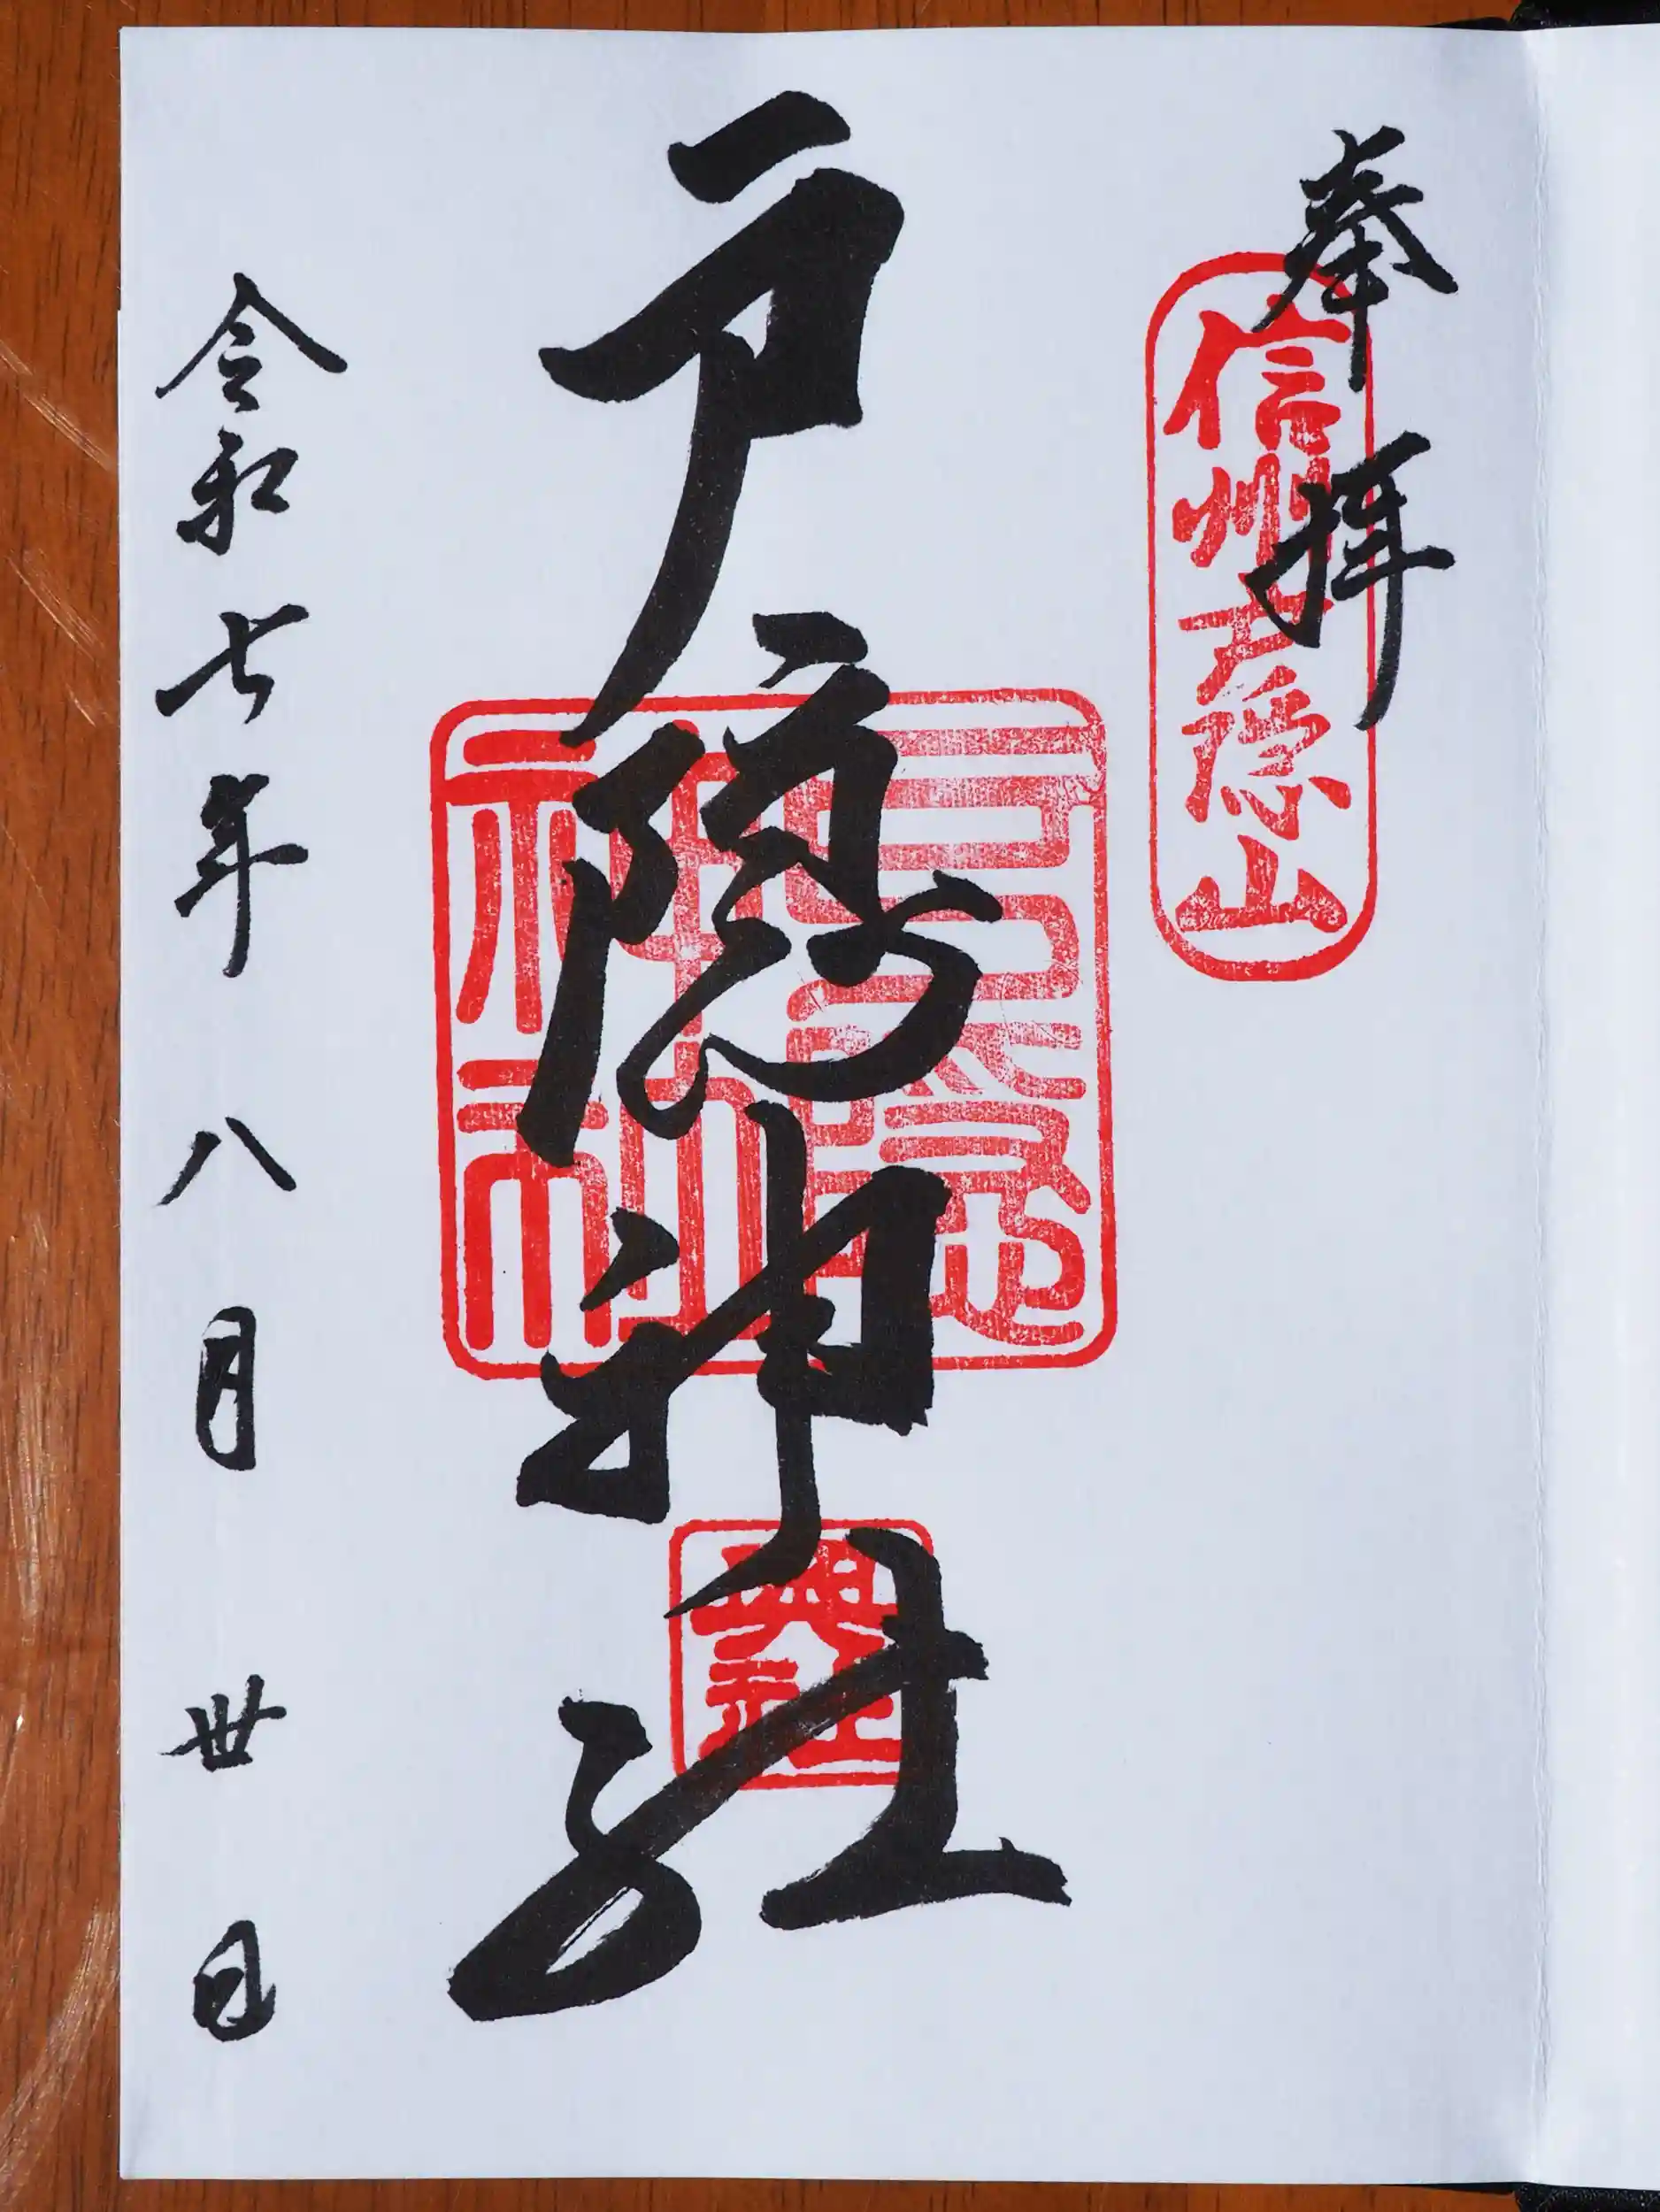 奉拝
信州戸隠山
戸隠神社
戸隠神社
奥社
令和七年八月卅日